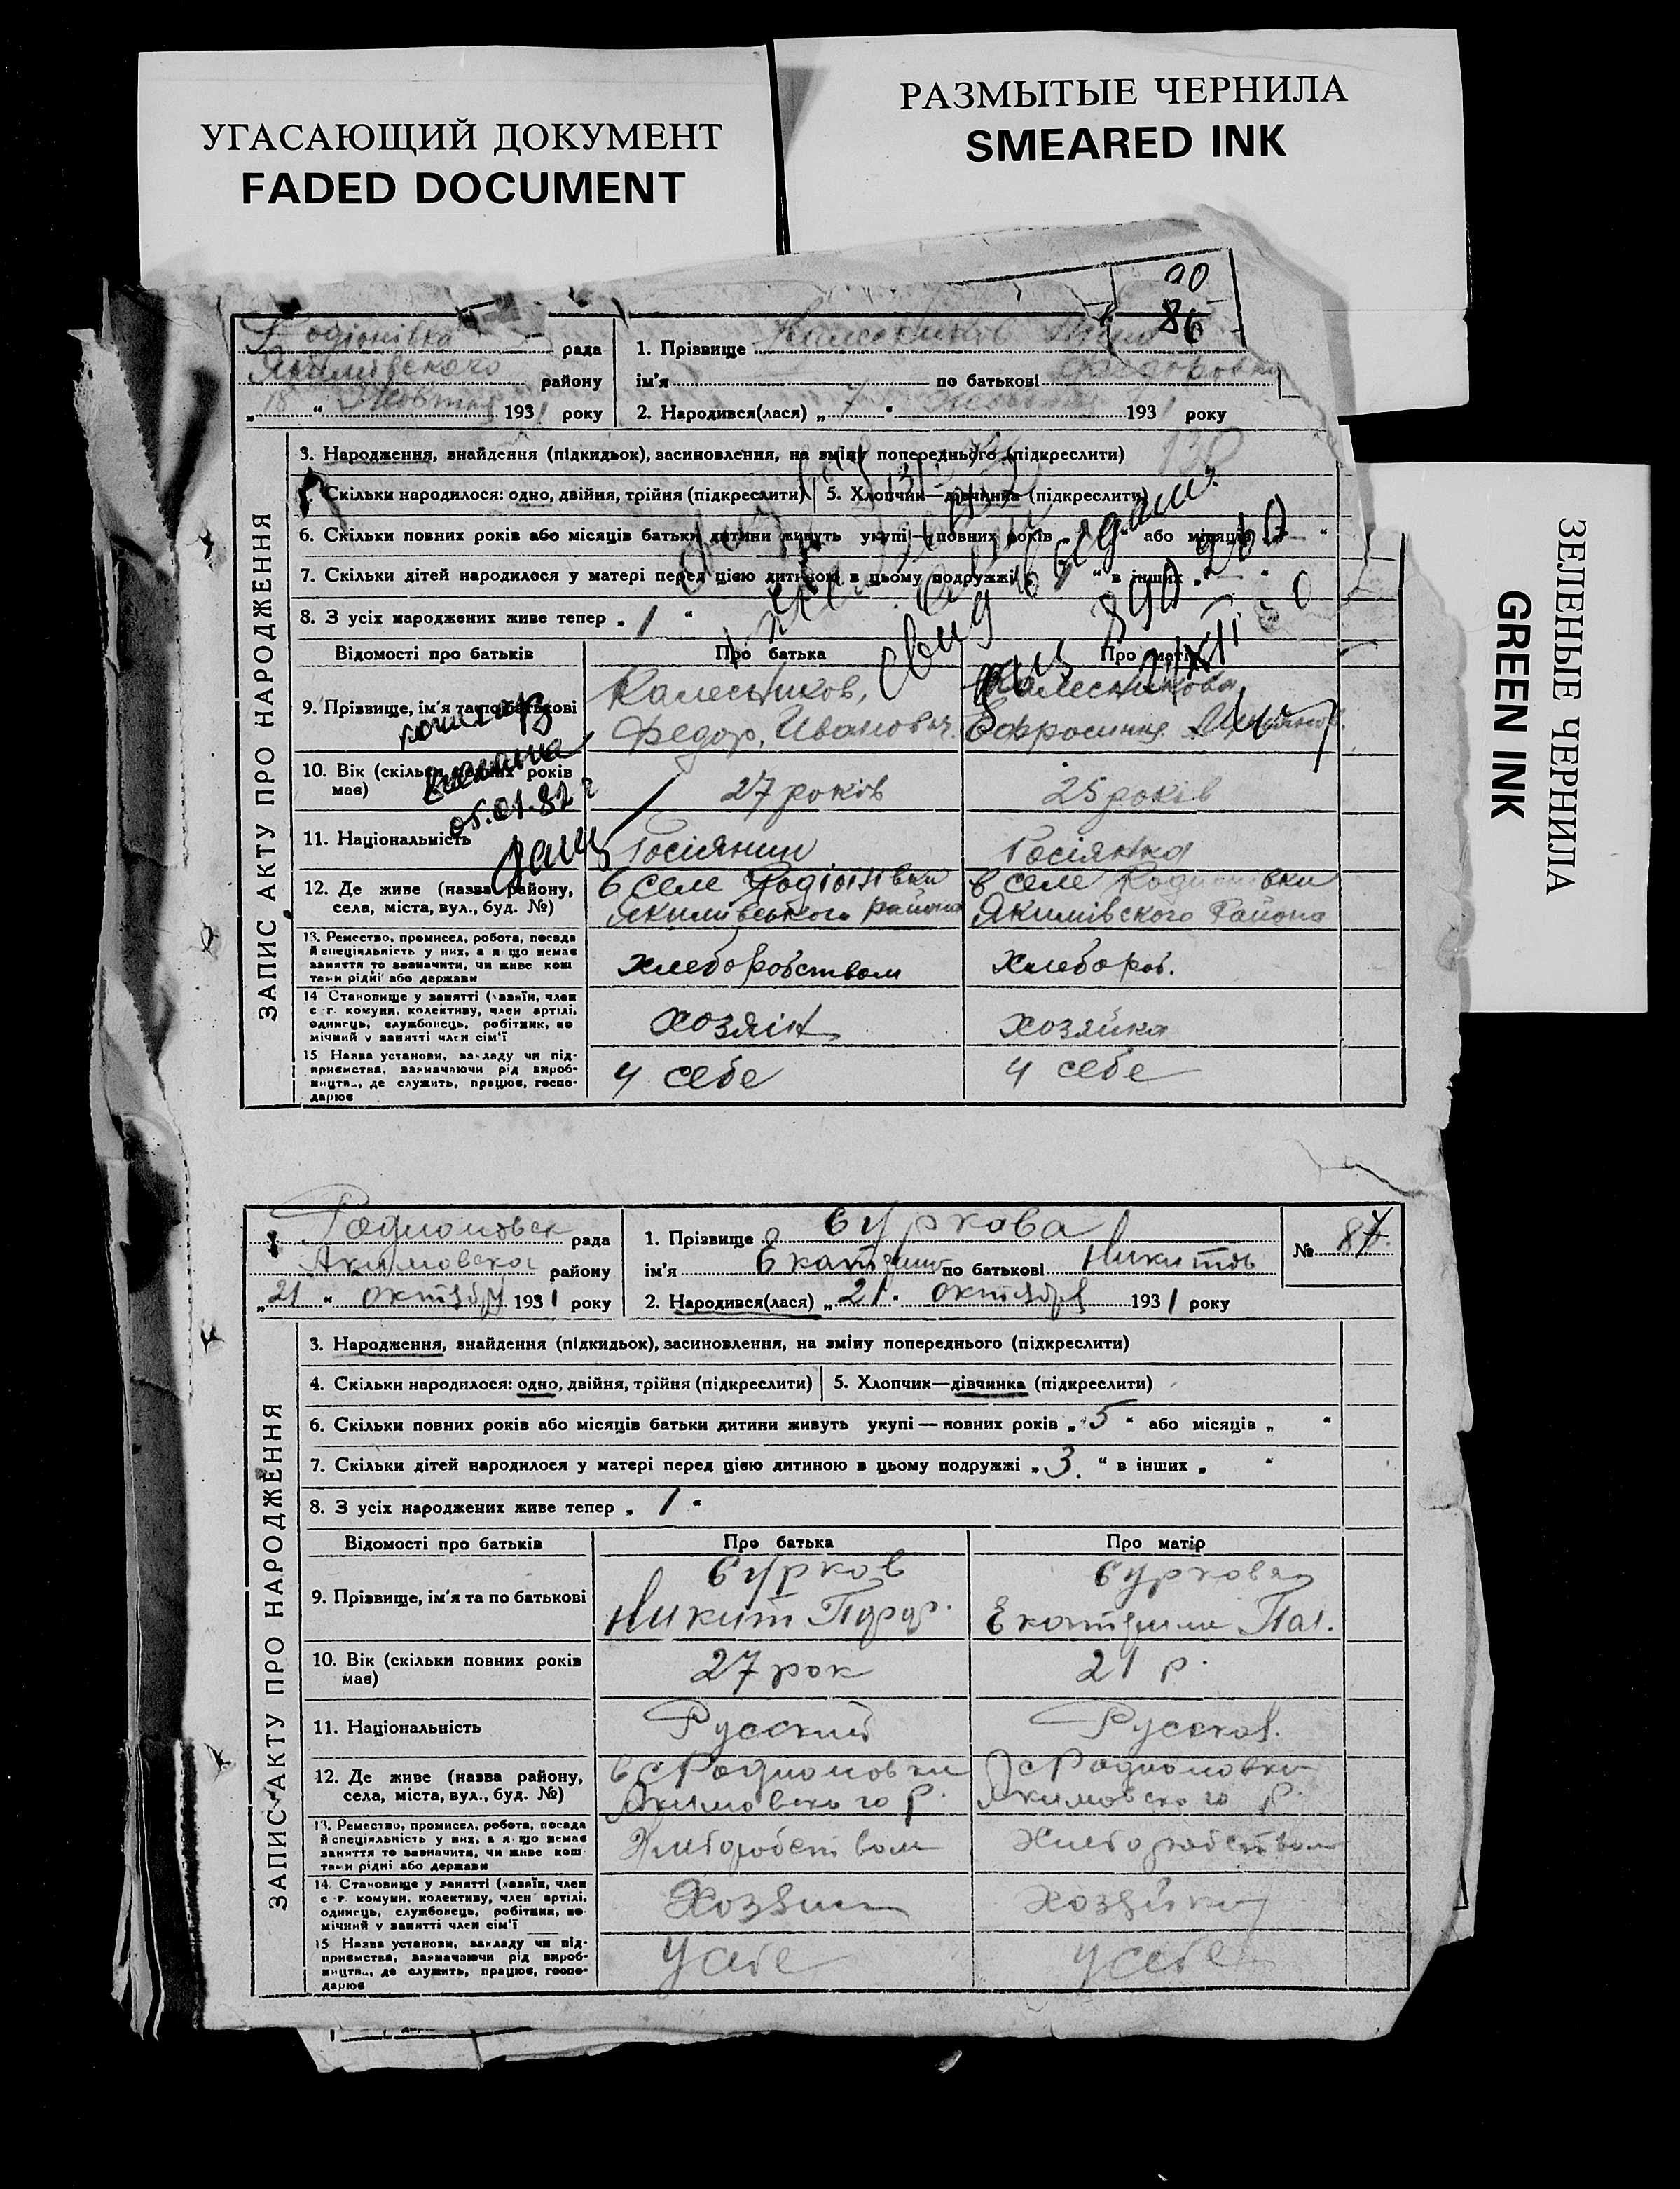 УГАСАЮЩИЙ ДОКУМЕНТ
FADED DOCUMENT
РАЗМЫТЫЕ ЧЕРНИЛА
SMEARED INK
ЗЕЛЕНЫЕ ЧЕРНИЛА
GREEN INK
90
86
Родіонівка рада
Якимівского району
„18“ Жовтня 1931 року
1. Прізвище
ім'я по батькові Федоровна
2. Народився(лася) „7“ Жовтня 1931 року
ЗАПИС АКТУ ПРО НАРОДЖЕННЯ
3. Народження, знайдення (підкидьок), засиновлення, на зміну попереднього (підкреслити)
Скільки народилося: одно, двійня, трійня (підкреслити) 5. Хлопчик—дівчинка (підкреслити)
6. Скільки повних років або місяців батьки дитини живуть укупі — повних років або місяців
7. Скільки дітей народилося у матері перед цією дитиною в цьому подружжі в інших
8. З усіх народжених живе тепер „1“
Відомості про батьків Про батька Про матір
9. Прізвище, ім'я та по батькові
Калесников, Калесникова
Федор, Иванович. Ефросиния
10. Вік (скільки повних років має)
27 років 25 років
05.01.82
11. Національність
Росіянин Росіянка
12. Де живе (назва району, села, міста, вул., буд. №)
в селе Родіонівки в селе Родионівки
Якимівського района Якимівского Района
13. Ремество, промисел, робота, посада й спеціяльність у них, а якщо немає заняття то зазначити, чи живе коштами рідні або держави
хлеборобством хлебороб.
14 Становище у занятті (хазяїн, член с.-г. комуни, колективу, член артілі, одинець, службовець, робітник, помічний у занятті член сім'ї
хозяін хозяйка
15 Назва установи, закладу чи підприємства, зазначаючи рід виробництв., де служить, працює, господарює
у себе у себе
Родионовск рада
Акимовска району
„21“ октября 1931 року
1. Прізвище Суркова
ім'я Екатерина по батькові Никитов
2. Народився(лася) „21. октября 1931 року
№ 87.
ЗАПИС АКТУ ПРО НАРОДЖЕННЯ
3. Народження, знайдення (підкидьок), засиновлення, на зміну попереднього (підкреслити)
4. Скільки народилося: одно, двійня, трійня (підкреслити) 5. Хлопчик—дівчинка (підкреслити)
6. Скільки повних років або місяців батьки дитини живуть укупі — повних років „5“ або місяців „ “
7. Скільки дітей народилося у матері перед цією дитиною в цьому подружжі „3.“ в інших „ “
8. З усіх народжених живе тепер „1“
Відомості про батьків Про батька Про матір
9. Прізвище, ім'я та по батькові
Сурков Суркова
Никит Екатерина
10. Вік (скільки повних років має)
27 рок 21 р.
11. Національність
Русский Русская
12. Де живе (назва району, села, міста, вул., буд. №)
в с Родионовки с Родионовки
Якимовского Р. Якимовского Р.
13. Ремество, промисел, робота, посада й спеціяльність у них, а якщо немає заняття то зазначити, чи живе коштами рідні або держави
Хлеборобством Хлеборобством
14. Становище у занятті (хазяїн, член с.-г. комуни, колективу, член артілі, одинець, службовець, робітник, помічний у занятті член сім'ї
Хозяин Хозяйка
15 Назва установи, закладу чи підприємства, зазначаючи рід виробництв., де служить, працює, господарює
У себе у себе